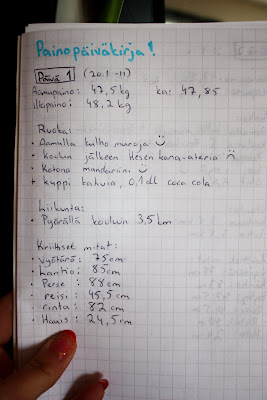 Painopäiväkirja!
Päivä 1 (20.1-11)
Aamupaino: 47,5 kg ka: 47,85
Iltapaino: 48,2 kg
Ruoka:
• Aamulla kulho muroja
• Koulun jälkeen Hesen kana-ateria
• Kotona mandariini
+ kuppi kahvia, 0,1 dl coca cola
Liikunta:
• Pyörällä kouluun 3,5 km
Kriittiset mitat:
• Vyötärö: 75cm
• Lantio: 85cm
• Perse: 88cm
• reisi: 45,5 cm
• rinta: 82 cm
• Hauis: 24,5cm